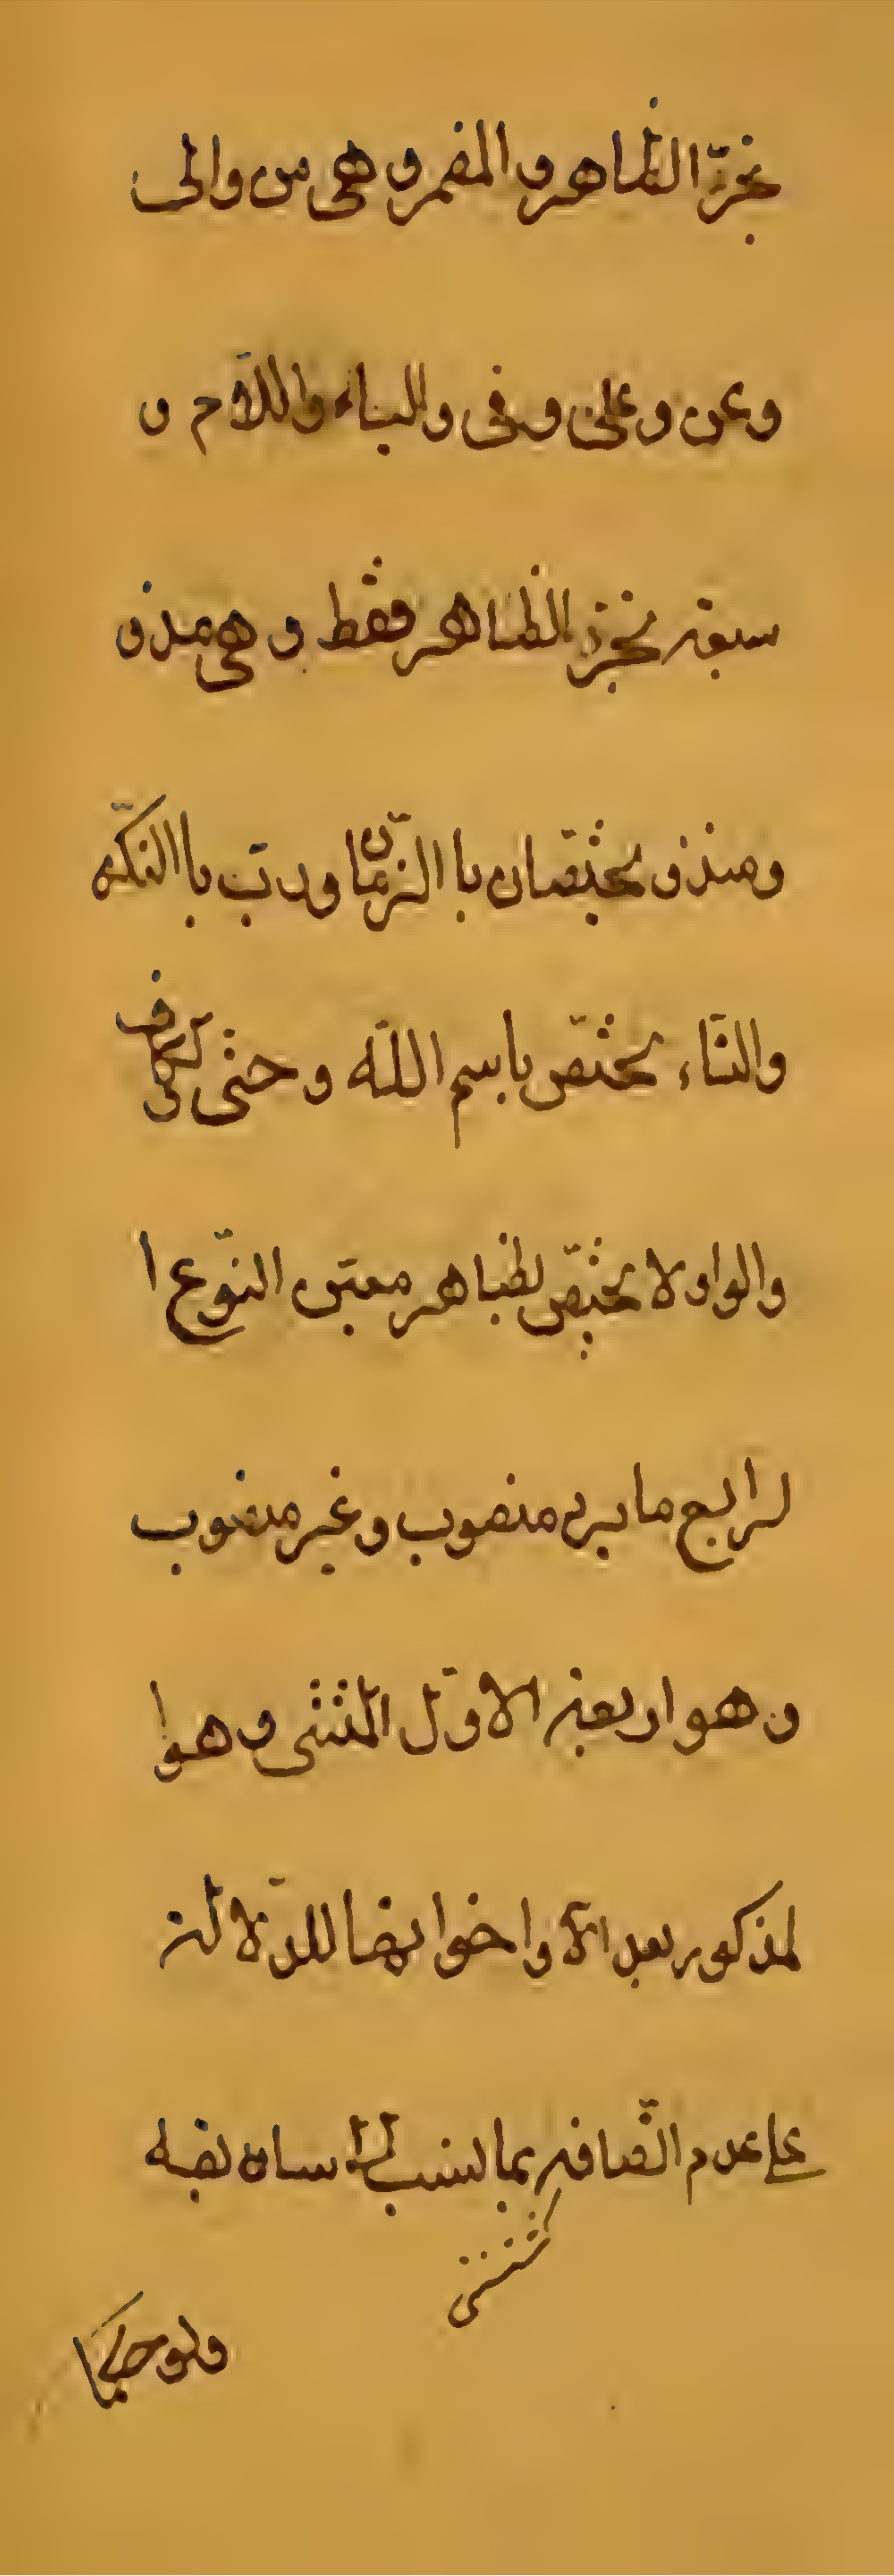 تجرّ الظاهر و المضمر و هى من والى
وعن وعلى وفى والباء واللّام و
سبعة تجرّ الظاهر فقط و هى مذ و
ومنذ و يختصّان با الزّمان و ربّ با النكّره
والتّاء يختصّ باسم اللّه و حتّى كاف
والواو لا يختصّ لظاهر معيّن النّوع ا
لرابع ما يرد منصوب و غير منصوب
و هو اربعة الاوّل المثنى و هو ا
لمذكور بعد الّا واخواتها للدّلالة
على عدم اتّصافه بما نسب الى سابقه
ولو حكما